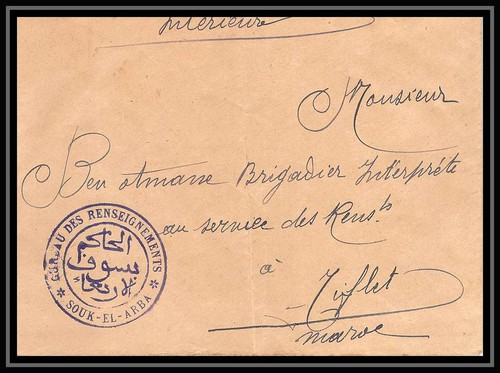 Intérieure
Monsieur
Ben otmane Brigadier Interprète
au service des Rens.ts
à
Tiflet
maroc
* BUREAU DES RENSEIGNEMENTS *
SOUK-EL-ARBA
الحاكم
بسوق
الاربعاء